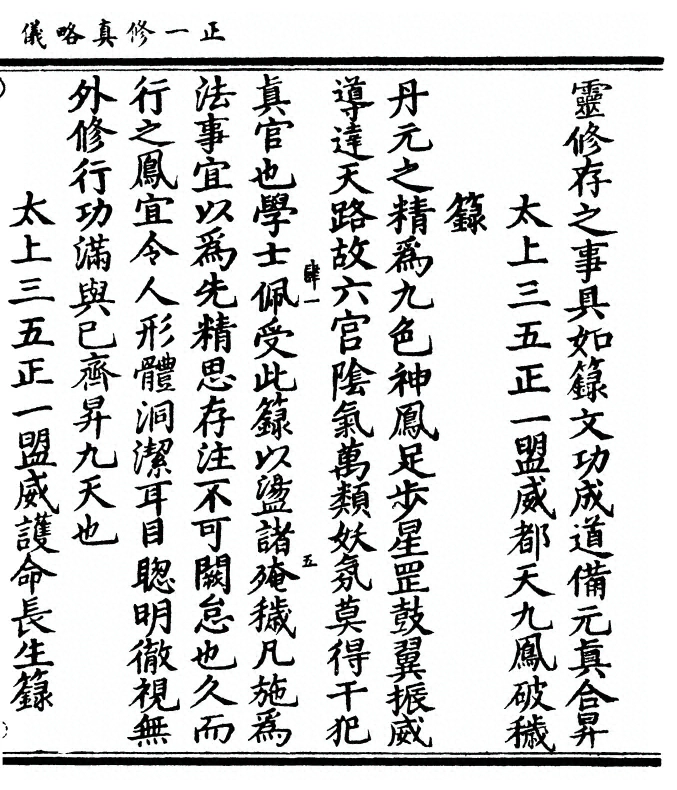 正一修真略儀
靈修存之事具如籙文功成道備元真合昇
太上三五正一盟威都天九鳳破穢
籙
丹元之精爲九色神鳳足步星罡鼓翼振威
導達天路故六宫陰氣萬類妖氛莫得干犯
真官也學士佩受此籙以盪諸殗穢凡施爲
肆一
五
法事宜以爲先精思存注不可闕怠也久而
行之鳳宜令人形體洞潔耳目聦明徹視無
外修行功滿與已齊昇九天也
太上三五正一盟威護命長生籙